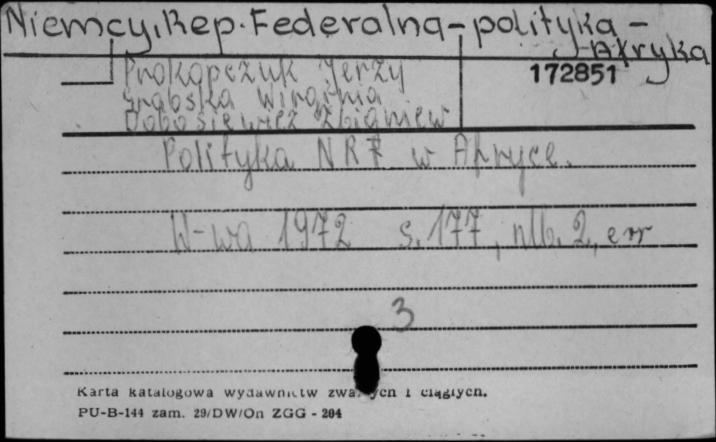 Niemcy, Rep. Federalna - polityka -
- Afryka
Prokopczuk Jerzy
172851
Grabska Wirginia
Dobosiewicz Zbigniew
Polityka NRF w Afryce.
W-wa 1972 s. 177, nlb. 2, err
3
Karta katalogowa wydawnictw zwartych i ciągłych.
PU-B-144 zam. 29/DW/On ZGG - 204